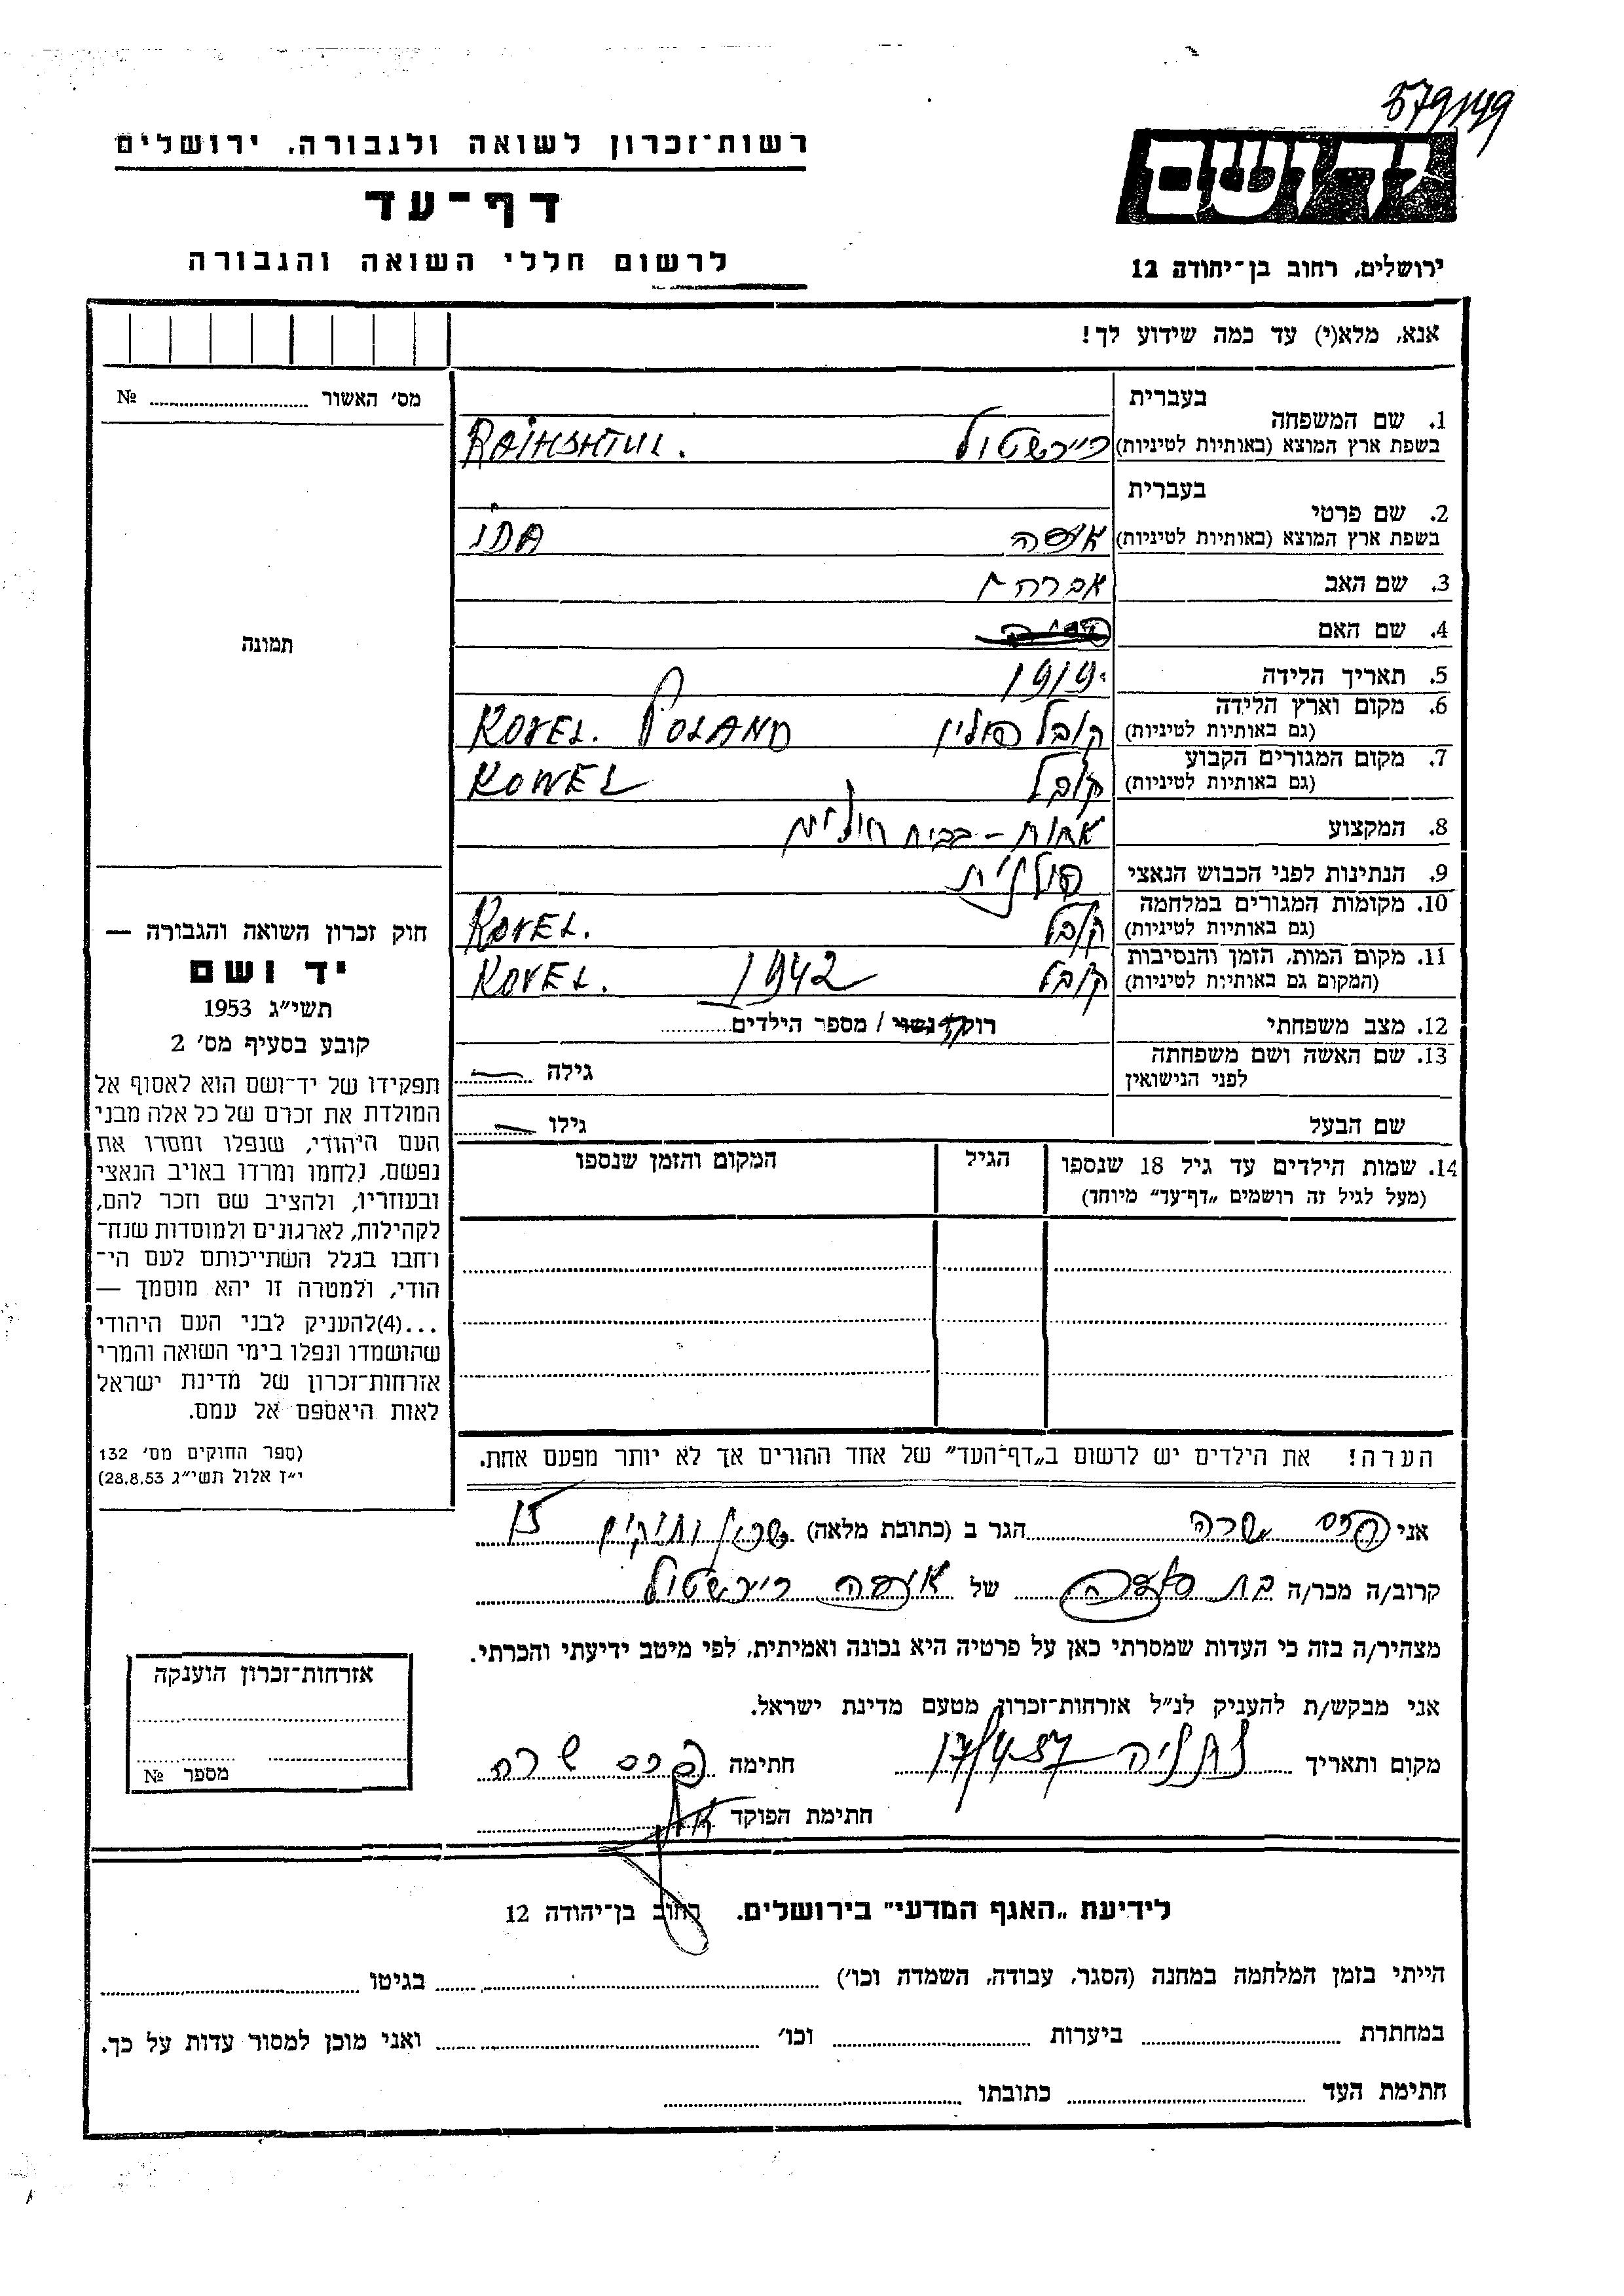 579/149
יד ושם
רשות־זכרון לשואה ולגבורה, ירושלים
דף־עד
לרשום חללי השואה והגבורה
ירושלים, רחוב בן־יהודה 12
אנא, מלא(י) עד כמה שידוע לך!
מס׳ האשור № ..........
בעברית
1. שם המשפחה
בשפת ארץ המוצא (באותיות לטיניות) רייכשטול RAIHSHTUL.
בעברית
2. שם פרטי
בשפת ארץ המוצא (באותיות לטיניות) אידה IDA
3. שם האב אברהם
4. שם האם
5. תאריך הלידה 1919
6. מקום וארץ הלידה
(גם באותיות לטיניות) קובל פולין KOVEL. POLAND
7. מקום המגורים הקבוע
(גם באותיות לטיניות) קובל KOWEL
8. המקצוע אחות - בבית חולים
9. הנתינות לפני הכבוש הנאצי פולנית
10. מקומות המגורים במלחמה
(גם באותיות לטיניות) קובל KOVEL.
11. מקום המות, הזמן והנסיבות
(המקום גם באותיות לטיניות) קובל 1942 KOVEL.
12. מצב משפחתי רוק/ה נשוי / מספר הילדים..........
13. שם האשה ושם משפחתה
לפני הנישואין גילה
שם הבעל גילו
14. שמות הילדים עד גיל 18 שנספו הגיל המקום והזמן שנספו
(מעל לגיל זה רושמים „דף־עד״ מיוחד)
הערה! את הילדים יש לרשום ב„דף־העד״ של אחד ההורים אך לא יותר מפעם אחת.
תמונה
חוק זכרון השואה והגבורה —
יד ושם
תשי״ג 1953
קובע בסעיף מס׳ 2
תפקידו של יד־ושם הוא לאסוף אל
המולדת את זכרם של כל אלה מבני
העם היהודי, שנפלו ומסרו את
נפשם, נלחמו ומרדו באויב הנאצי
ובעוזריו, ולהציב שם וזכר להם,
לקהילות, לארגונים ולמוסדות שנח־
רחבו בגלל השתייכותם לעם הי־
הודי, ולמטרה זו יהא מוסמך —
...(4)להעניק לבני העם היהודי
שהושמדו ונפלו בימי השואה והמרי
אזרחות־זכרון של מדינת ישראל
לאות היאספם אל עמם.
(ספר החוקים מס׳ 132
י״ז אלול תשי״ג 28.8.53)
אני פרס שרה הגר ב (כתובת מלאה) שכון ותיקים
קרוב/ה מכר/ה בת דודה של אידה רייכשטול
מצהיר/ה בזה כי העדות שמסרתי כאן על פרטיה היא נכונה ואמיתית, לפי מיטב ידיעתי והכרתי.
אני מבקש/ת להעניק לנ״ל אזרחות־זכרון מטעם מדינת ישראל.
מקום ותאריך נתניה 17/4-57 חתימה פרס שרה
חתימת הפוקד
אזרחות־זכרון הוענקה
מספר №
לידיעת „האגף המדעי״ בירושלים. רחוב בן־יהודה 12
הייתי בזמן המלחמה במחנה (הסגר, עבודה, השמדה וכו׳) .......... בגיטו ..........
במחתרת .......... ביערות .......... וכו׳ .......... ואני מוכן למסור עדות על כך.
חתימת העד .......... כתובתו ..........